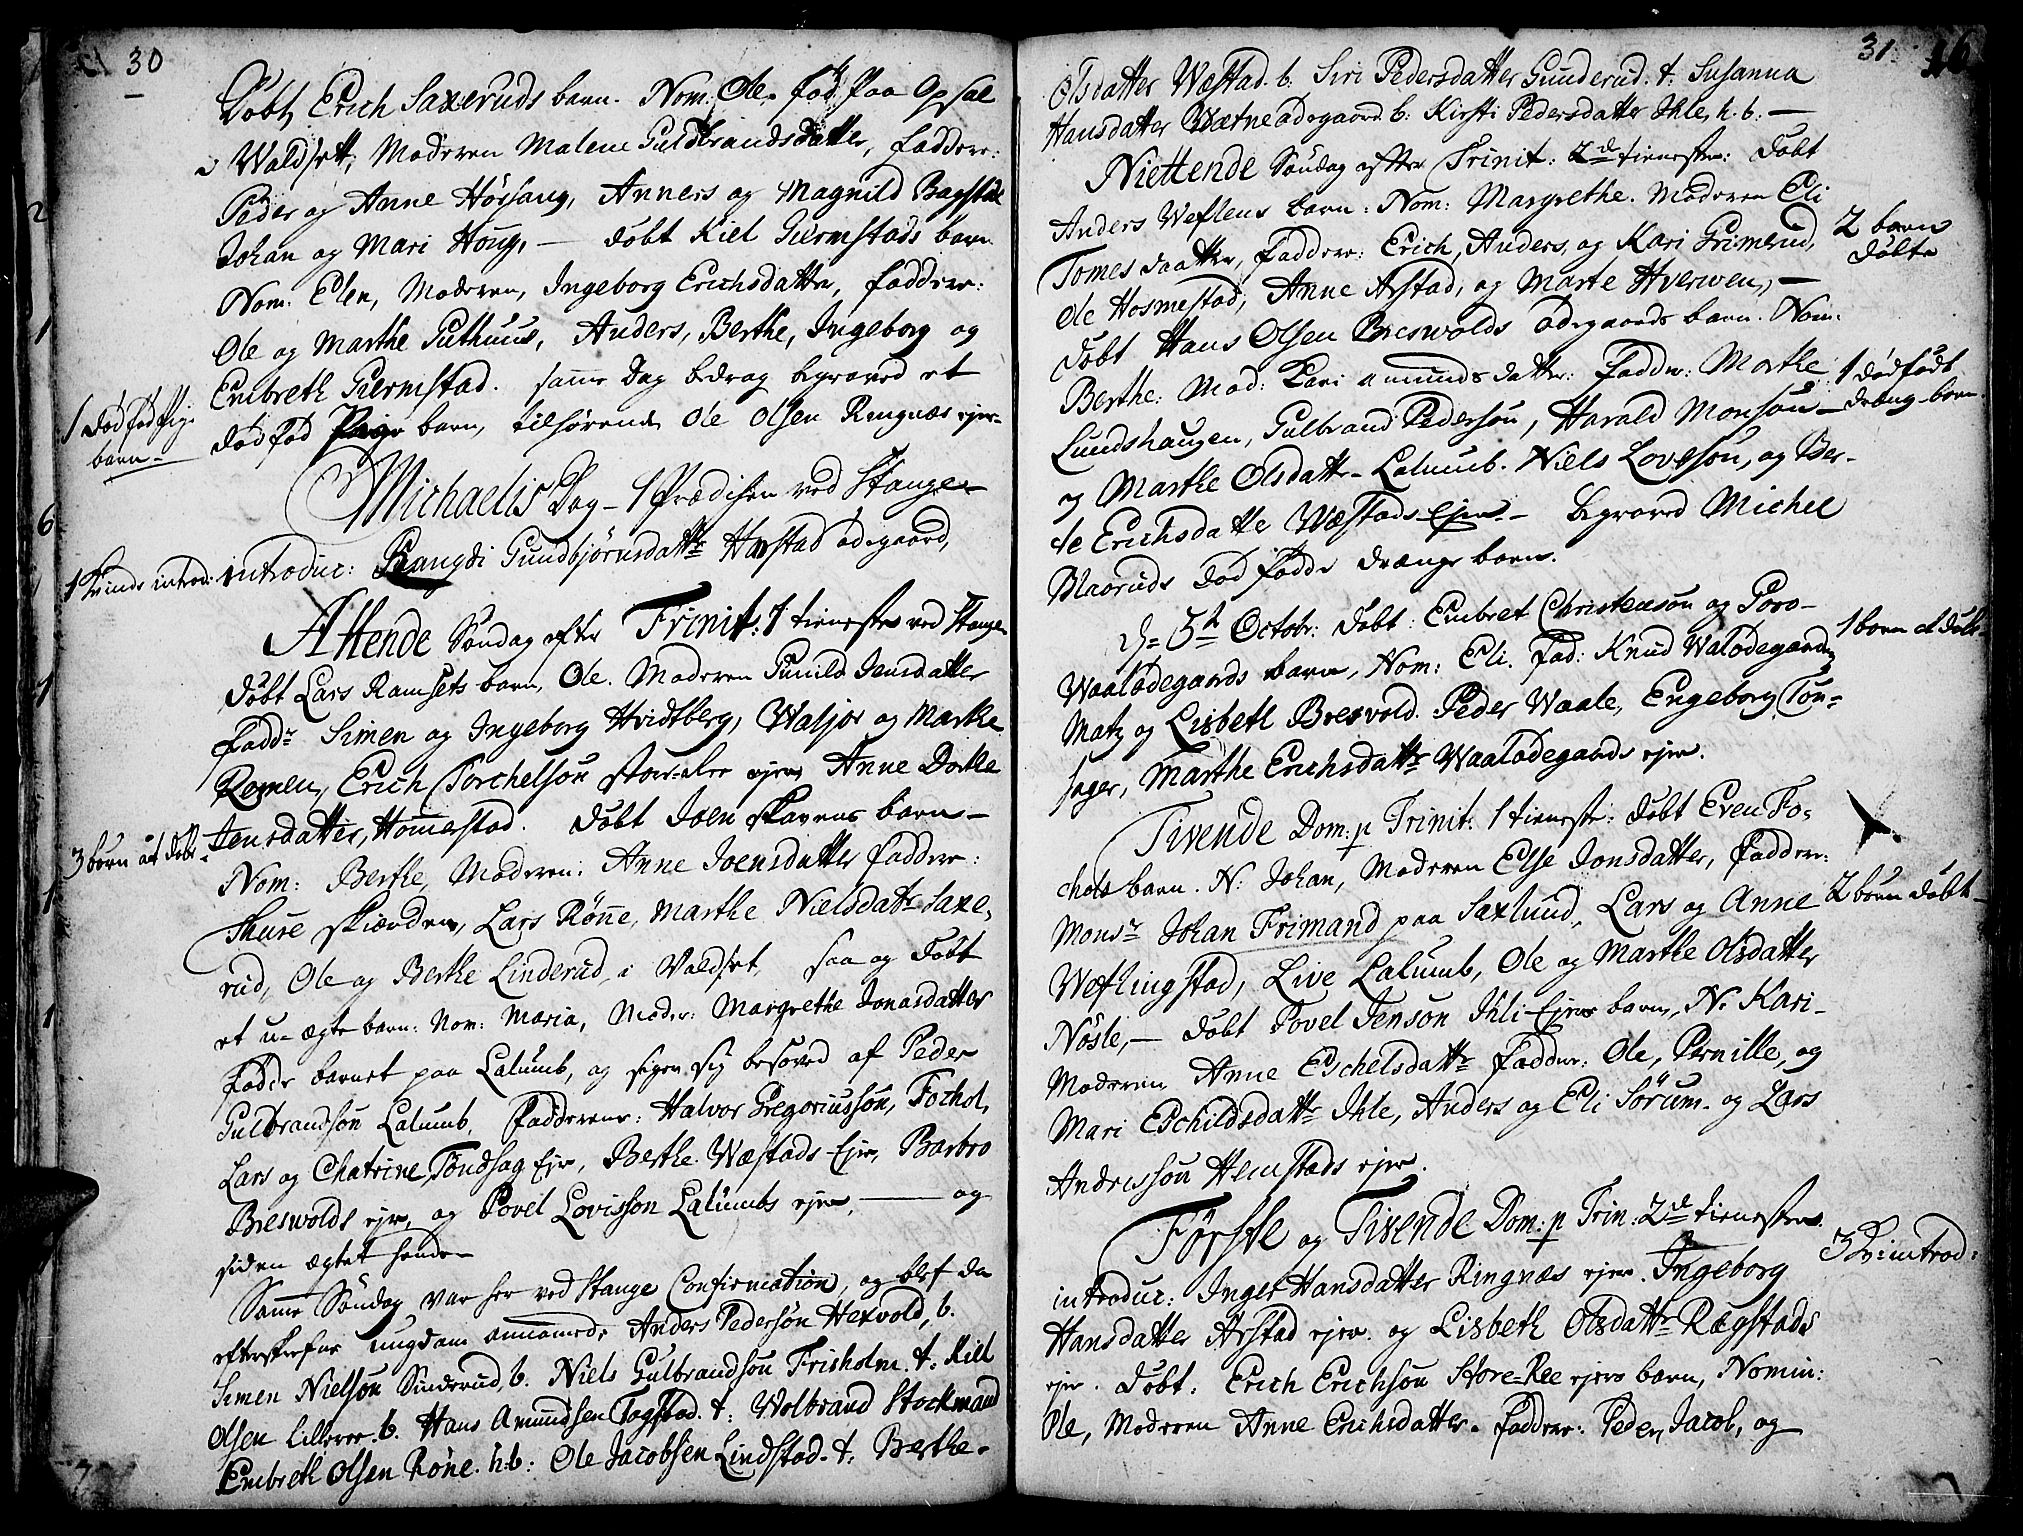 30
Döbt Erich Saxeruds barn. Nom: Ole, föd paa Opsal
i Waldset, Moderen Malene Guldbrandsdatter, Faddere:
Peder og Anne Hörsang, Anners og Magnild Bagstad
Johan og Mari Houg, — döbt Kiel Giermstads barn
Nom: Elen, Moderen, Ingeborg Erichsdatter, Faddere:
Ole og Marthe Guthuus, Anders, Berthe, Ingeborg og
Embreth Giermstad. samme Dag begraved et
dödföd Pige barn, tilhörende Ole Olsen Ringnæs ejer-
1 dödföd Pige
barn-
Michaelis Dag - 1 Prædiken ved Stange-
1 Kinde introd: introduc: Rangdi Gundbjörnsdattr Harstad ödegaard,
Attende Söndag efter Trinit: 1 tieneste ved Stange
döbt Lars Ramsets barn, Ole. Moderen Gunild Jensdatter
Faddr Simen og Ingeborg Hvidtberg, Walsjor og Marthe
Romen, Erich Torchelsön store-ree ejer, Anne Dorthe
Jensdatter, Hommerstad. Döbt Joen Skavens barn-
3 börn at döbt-
Nom: Berthe, Moderen: Anne Joensdatter Faddere:
Thure Skiærden, Lars Rönne, Marthe Nielsdattr Saxe,
rud, Ole og Berthe Linderud i Valdset, saa og Döbt
et u-ægte barn: Nom: Maria, Moder: Margrethe Jonasdatter
Födde barnet paa Lalumb, og siger sig besöved af Peder
Gulbrandsön Lalumb, Fadderne: Halvor Gregoriussön, Fochol,
Lars og Chatrine Töndsag Ejer, Berthe Wæstads Ejer, Barbro
Breswolds ejer, og Povel Lovisson Lalumbs ejer, — og
siden ægtet hende-
Samme Söndag var her ved Stange Confirmation, og blef da
efterskrefne ungdom annamede Anders Pedersön Hexvold, b.
Simen Nielsön Sinderud, b. Niels Gulbrandsön Frisholm. t. Kiel
Olsen Lilleree. b. Hans Amundsen Togstad. t: Wolbrand Stockmand
Embreth Olsen Röne. h.b: Ole Jacobsen Lindstad. t. Berthe-
31. 16
Olsdatter Wæstad. b. Siri Pedersdatter Gunderud. t. Susanna
Hansdatter Wætne ödegaard. b: Kirsti Pedersdatter Ihle, h. b: —
Niettende Söndag efter Trinit: 2de tieneste: döbt
Anders Weflens barn: Nom: Margrethe. Moderen Eli
Tomesdaatter, Faddere: Erich, Anders, og Kari Grimerud,
2 barn
döbte
Ole Hosmestad, Anne Arstad, og Marte Hverven, —
döbt Hans Olsen Breswolds ödegaards barn. Nom:
Berthe: Mod: Kari Amundsdatter: Faddr: Marthe
1 dödfödt
dreng-barn
Lundshaugen, Gulbrand Pedersön, Harald Monsön-
og Marthe Olsdatter Lalumb. Niels Lovesön, og Ber-
te Erichsdatter Wæstads Ejer - begraved Michel
Blaaruds död födde drenge barn.
d= 5te Octobr: döbt: Embret Christensön og Goro-
1 barn at döbt-
Waalödegaards barn, Nom: Eli. Fad: Knud Walödegaard,
Matz og Lisbeth Bresvold. Peder Waale, Engeborg Tön-
sager, Marthe Erichsdattr Waalödegaards ejer.
Tivende Dom: p Trinit: 1 tieneste: döbt Even Fo-
chols barn. N: Johan, Moderen Else Jonsdatter, Faddere:
Monsr Johan Frimand paa Saxlund, Lars og Anne
2 börn döbt-
Weflingstad, Live Lalumb, Ole og Marthe Olsdatter
Nösle, — döbt Povel Jensön Ihli-Ejers barn, N: Kari-
Moderen Anne Eschelsdattr Faddr: Ole, Pernille, og
Mari Eschildsdattr Ihle, Anders og Eli Sörum. og Lars
Andersön Hemstads ejer.
Förste og Tivende Dom: p Trin: 2de tienester.
3 Kv: introd:
introduc: Inger Hansdatter Ringnæs ejer. Ingeborg
Hansdatter Arstad ejer. og Lisbeth Olsdattr Rægstads
ejer. Döbt: Erich Erichsön Store-Ree ejers barn, Nomin:
Ole, Moderen Anne Erichsdatter. Faddere: Peder, Jacob, og